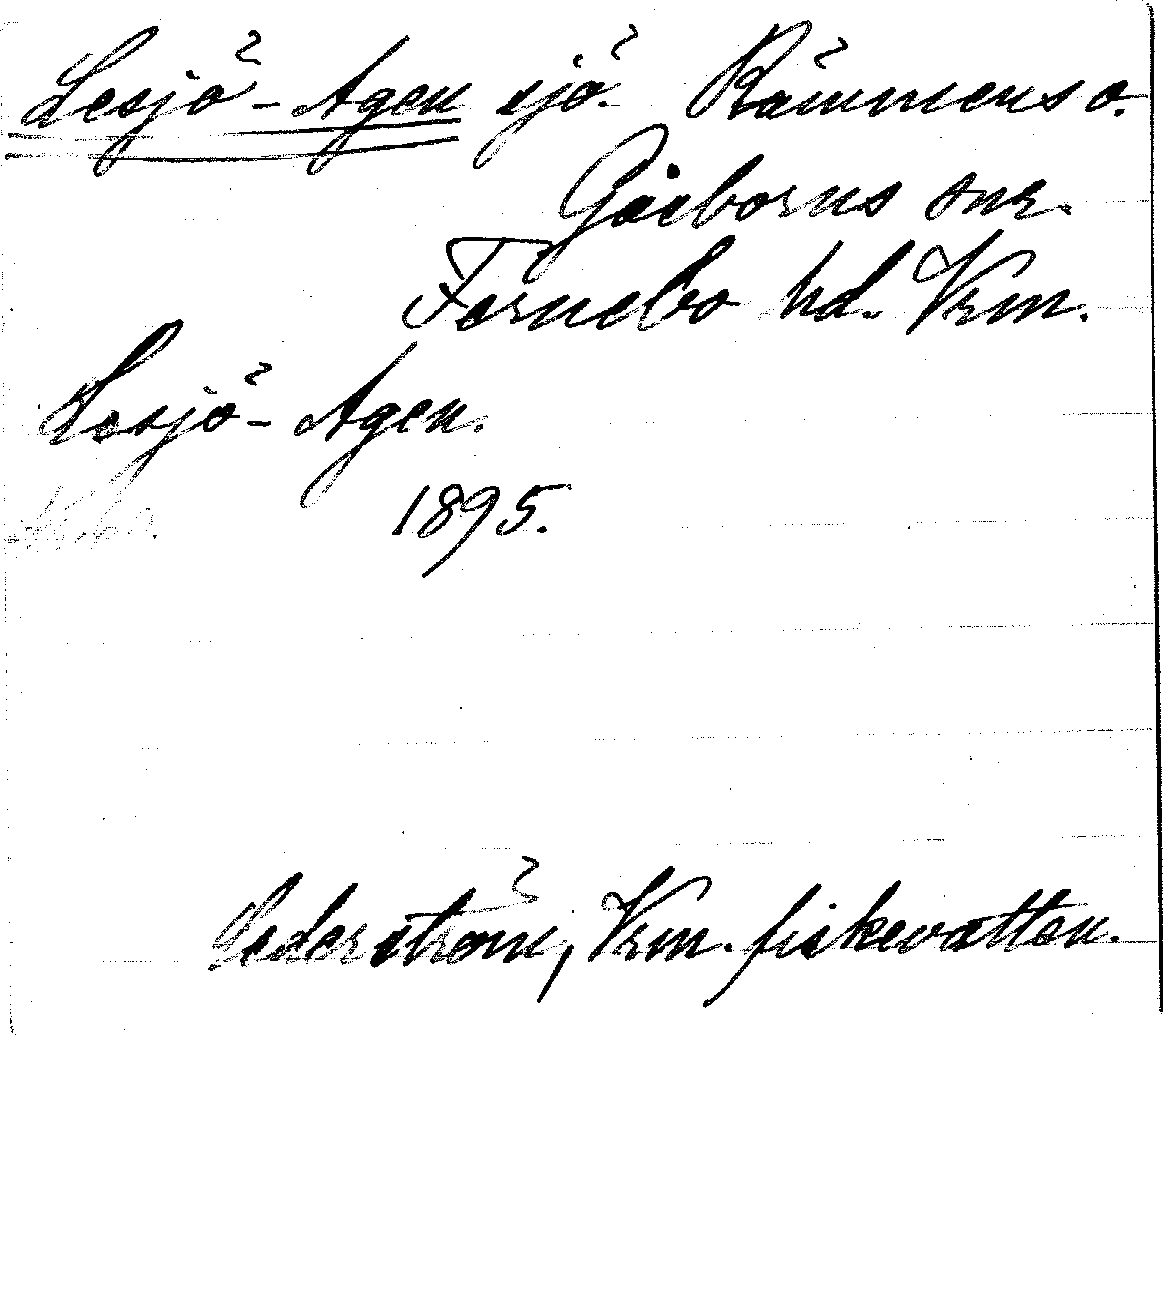 Lesjö-Agen sjö. Rämmens o.
Gåsborns snr.
Färnebo hd. Vrm.
Lesjö-Agen.
1895.
Cederström, Vrm. fiskevatten.